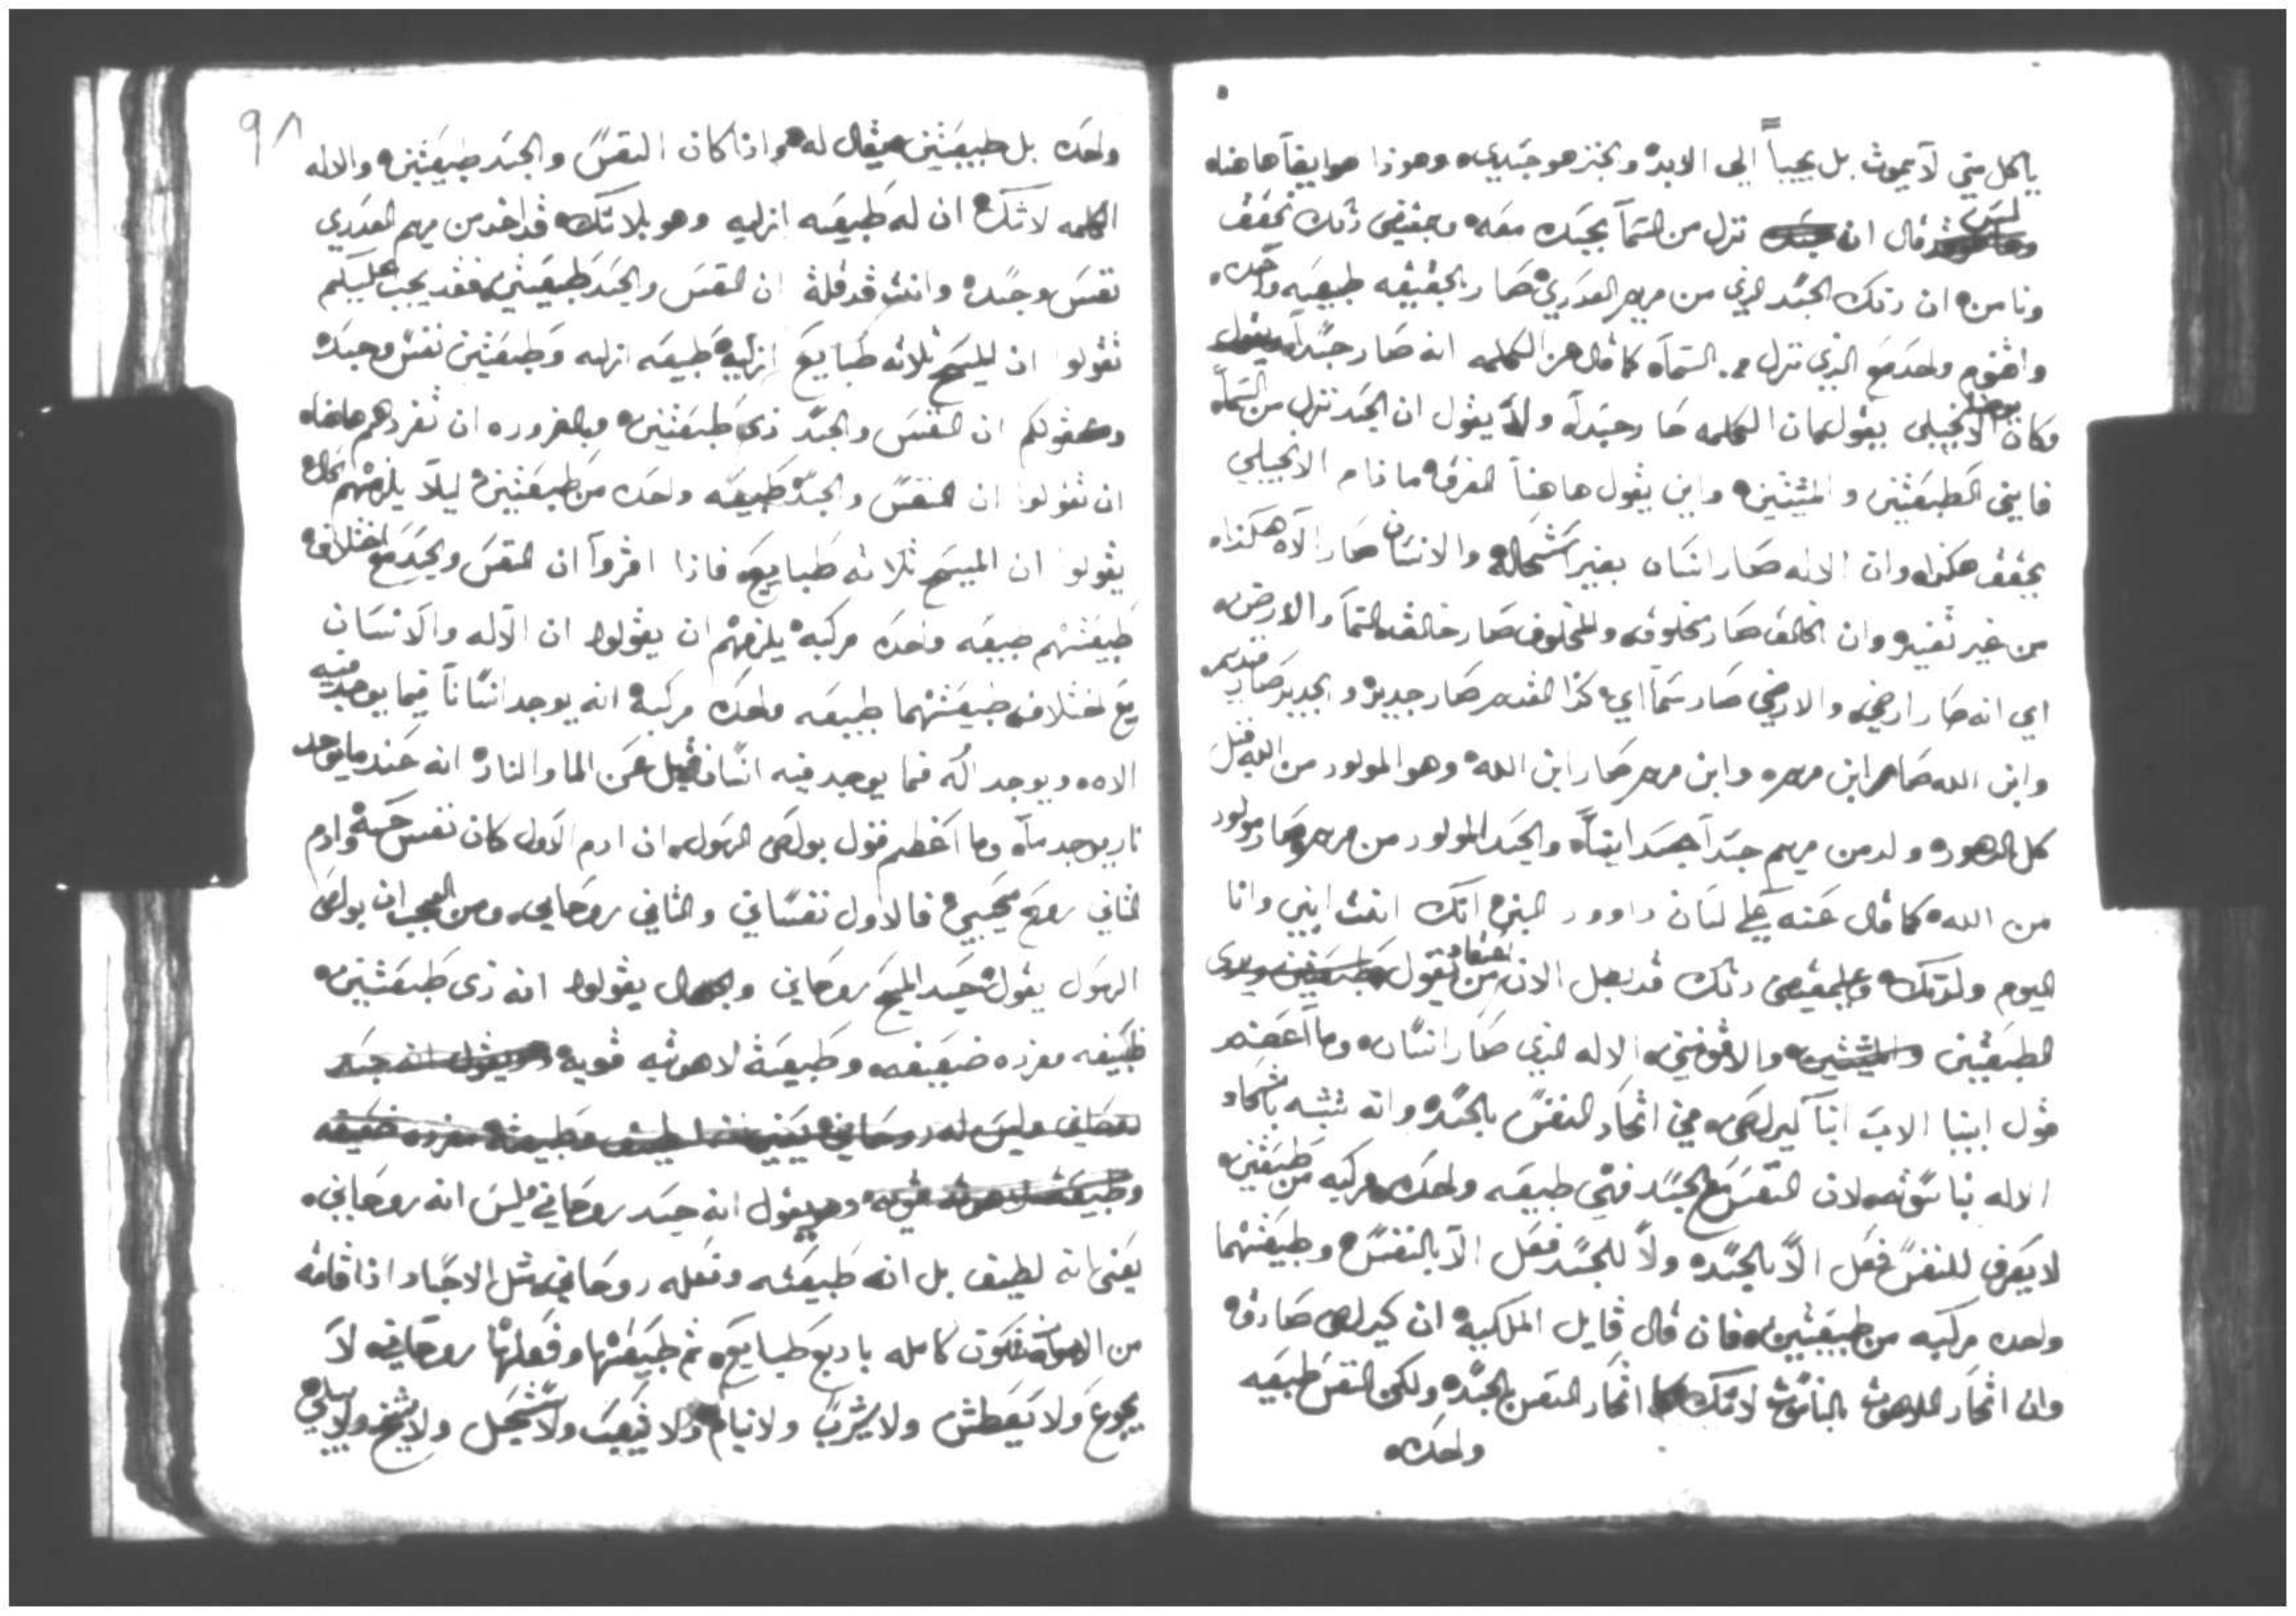 ياكل مني لا يموث بل يحيا الي الابد والخبز هو جسدي وهوذا هو ايضاً هاهناه
ليس قال ان نزل من السمآ بجسده معه وبمقتضى ذلك نحقق
ونامن ان ذلك الجسد الذي من مريم العدري صار بالحقيقه طبيعه واحده
واقنوم واحد مع الذي نزل من السمآ كما قال عن الكلمه انه صار جسداً
فكان يوحنا الانجيلي يقول بان الكلمه صار جسداً ولا يقول ان الجسد نزل من السمآ
فاين الطبيعثين والمشيئثين واين يقول هاهنا الفرقه مادام الانجيلي
يحقق هكذا وان الاله صار انسان بغير اسثحاله والانسان صار الاه هكذاه
من غير ثغيير وان الخالق صار مخلوق والمخلوق صار خالق السمآ والارض
اي انه صار ارضي والارضي صار سمآاي كذا القديم صار جديد والجديد صار قديم
وابن الله صار ابن مريم وابن مريم صار ابن الله وهو المولود من الله قبل
كل الدهور ولد من مريم جسداً ايضاً والجسد المولود من مريم صار مولود
من الله كما قال عنه علي لسان داوود النبي انك انث ابني وانا
اليوم ولدثك وبمقثضى ذلك قد بطل الان اعثقاد من يقول
الطبيعثين والاقنومين الاله الذي صار انسان وما اعضم
قول ابينا الاب انبا كيرلص في اثحاد النفس بالجسد وانه ثشبه باثحاد
الاله بناسوثه لان النفس مع الجسد فهي طبيعه واحده مركبه من طبيعثين
لا يعرف للنفس فعل الا بالجسد ولا للجسد فعل الا بالنفس وطبيعثهما
واحده مركبه من طبيعثين فان قال قايل الملكيه ان كيرلص صادق
وان اثحاد اللاهوث بالناسوث لاشك اثحاد النفس بالجسد ولكن النفس طبيعه
واحده
٩٨
واحده بل طبيعثين فيقال له واذا كان النفس والجسد طبيعثين والاله
الكلمه لاشك ان له طبيعه ازليه وهو بلاشك قد اخد من مريم العدري
نفس وجسد وانث قد قلث ان النفس والجسد طبيعثين فقد يجب عليكم
ثقولوا ان للمسيح ثلاثه طبايع طبيعه ازليه وطبيعثين نفس وجسد
وبقولكم ان النفس والجسد ذي طبيعثين وبالضروره ان ثفردهم هاهناه
ان ثقولوا ان النفس والجسد طبيعه واحده من طبيعثين ليلا يلزمهم
يقولوا ان المسيح ثلاثه طبايع فاذا اقروا ان النفس والجسد مع اخثلاف
طبيعثهم طبيعه واحده مركبه يلزمهم ان يقولوا ان الاله والانسان
مع اخثلاف طبيعثهما طبيعه واحده مركبه انه يوجد انساناً فيما يوجد فيه
الاه ويوجد اله فيما يوجد فيه انسان قيل عن الما والنار انه عند ما يوجد
نار يوجد مآه وما اعظم قول بولص الرسول ان ادم الاول كان نفس حيه وادم
الثاني روح محيي فالاول نفساني والثاني روحاني ومن العجب ان بولص
الرسول يقول جسد المسيح روحاني والجهال يقولوا انه ذي طبيعثين
طبيعه مفرده ضعيفه وطبيعة لاهوثيه قويه
يقول انه جسد روحاني فليس انه روحاني
يعني انه لطيف بل انه طبيعثه وفعله روحاني مثل الاجساد اذا قامه
من الامواث فثكون كامله باربع طبايع ثم طبيعثها وفعلها روحاني لا
يجوع ولا يعطش ولا يشرب ولا ينام ولا يثعب ولا يسثحيل ولا يشيخ ولا يبلي